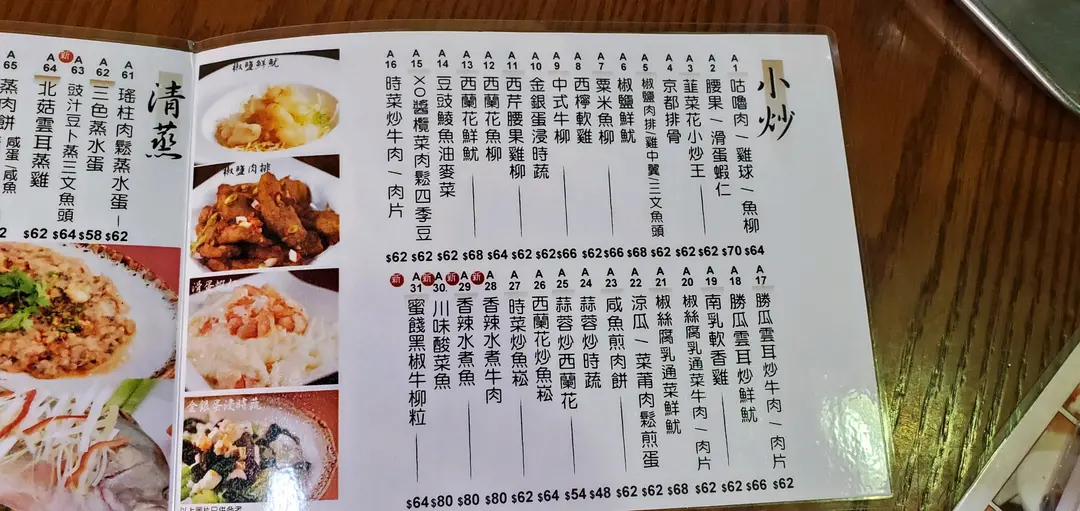 小炒
A1 咕嚕肉/雞球/魚柳 $64
A2 腰果/滑蛋蝦仁 $70
A3 韮菜花小炒王 $62
A4 京都排骨 $62
A5 椒鹽肉排/雞中翼/三文魚頭 $62
A6 椒鹽鮮魷 $68
A7 粟米魚柳 $66
A8 西檸軟雞 $62
A9 中式牛柳 $66
A10 金銀蛋浸時蔬 $62
A11 西芹腰果雞柳 $62
A12 西蘭花魚柳 $64
A13 西蘭花鮮魷 $68
A14 豆豉鯪魚油麥菜 $62
A15 XO醬欖菜肉鬆四季豆 $62
A16 時菜炒牛肉/肉片 $62
A17 勝瓜雲耳炒牛肉/肉片 $62
A18 勝瓜雲耳炒鮮魷 $66
A19 南乳軟香雞 $62
A20 椒絲腐乳通菜牛肉/肉片 $62
A21 椒絲腐乳通菜鮮魷 $68
A22 涼瓜/菜莆肉鬆煎蛋 $62
A23 咸魚煎肉餅 $62
A24 蒜蓉炒時蔬 $48
A25 蒜蓉炒西蘭花 $54
A26 西蘭花炒魚崧 $64
A27 時菜炒魚崧 $62
A28 香辣水煮牛肉 $80
新 A29 香辣水煮魚 $80
新 A30 川味酸菜魚 $80
新 A31 蜜餞黑椒牛柳粒 $64
新
椒鹽鮮魷
椒鹽肉排
滑蛋蝦仁
金銀蛋浸時蔬
以上圖片只供參考
清蒸
A61 瑤柱肉鬆蒸水蛋 $62
A62 三色蒸水蛋 $58
新 A63 豉汁豆卜蒸三文魚頭 $64
A64 北菇雲耳蒸雞 $62
A65 蒸肉餅 咸蛋/咸魚